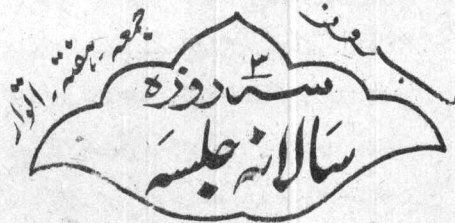 بروز
جمعہ، ہفتہ، اتوار
۳
سہ روزہ
سالانہ جلسہ